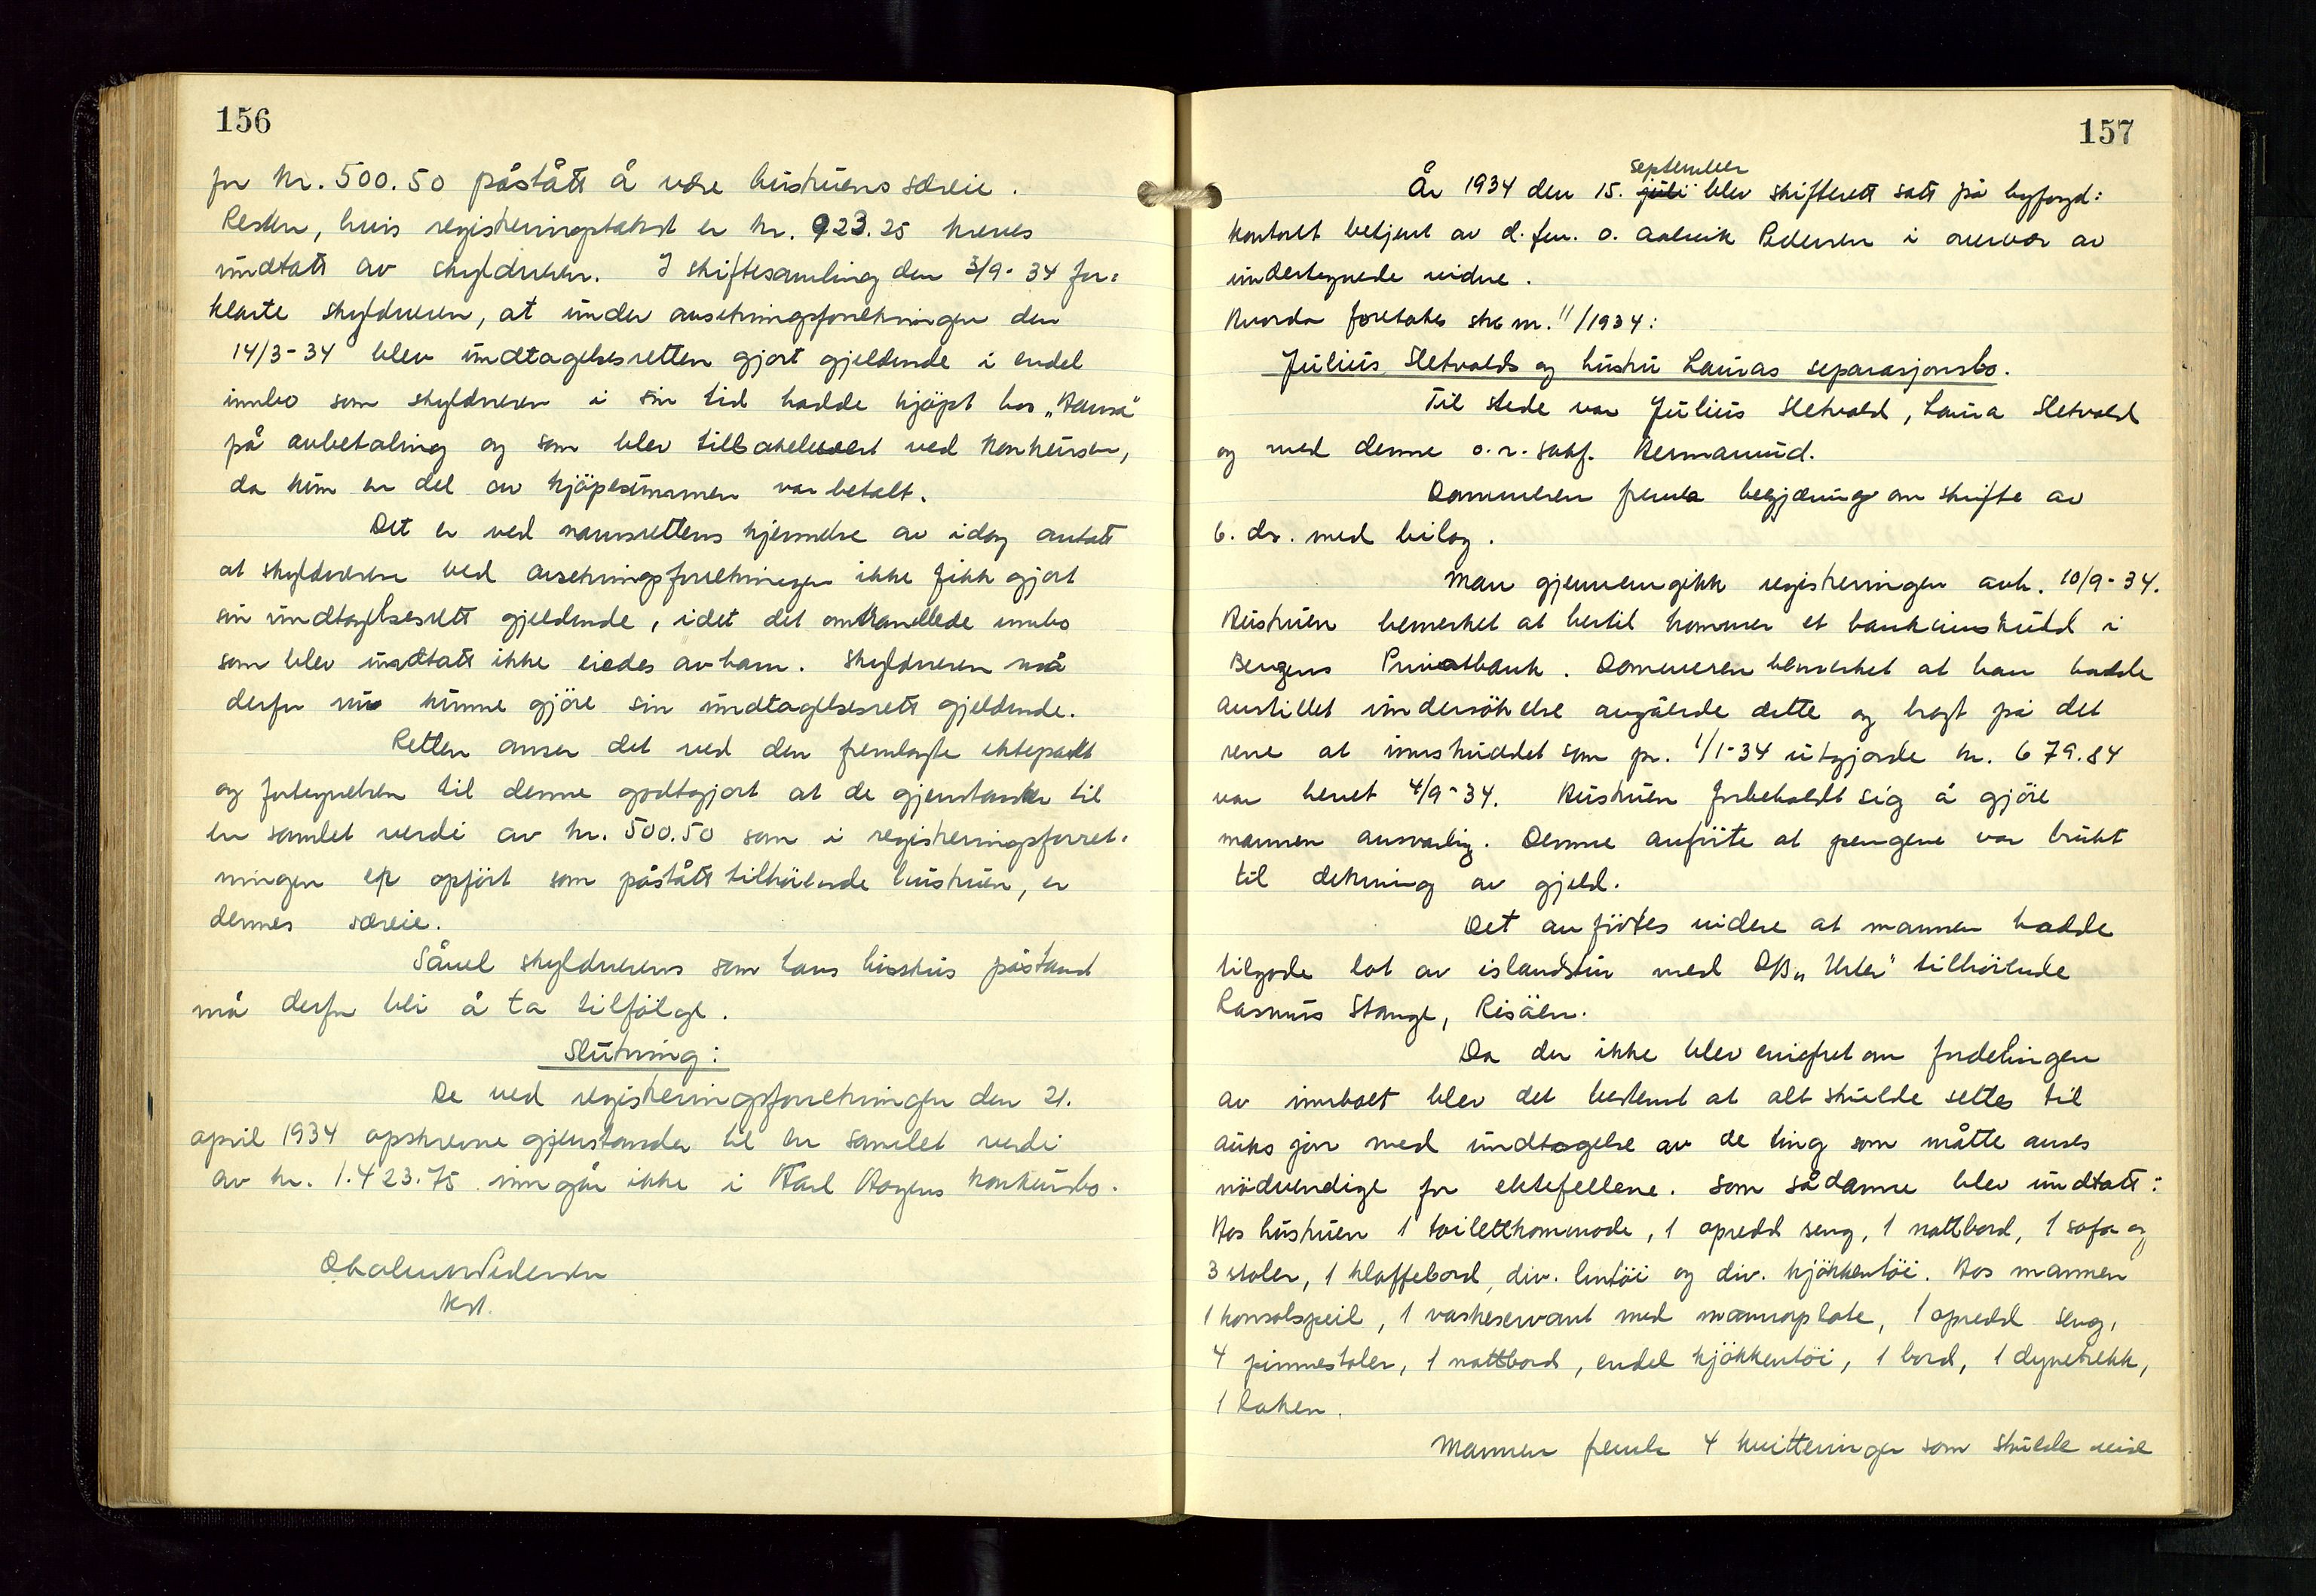 156
for kr. 500.50 påstått å være hustruens særeie.
Resten, hvis registreringstakst er kr. 923.25 kreves
undtatt av skyldneren. I skiftesamling den 3/9-34 for-
klarte skyldneren, at under ansetningsforretningen den
14/3-34 blev undtagelsesretten gjort gjeldende i endel
innbo som skyldneren i sin tid hadde kjöpt hos „Hansa"
på avbetaling og som blev tilbakelevert ved konkursen,
da kun en del av kjöpesummen var betalt.
Det er ved namsrettens kjennelse av idag antatt
at skyldneren ved ansetningsforretningen ikke fikk gjort
sin undtagelsesrett gjeldende, idet det omhandlede innbo
som blev undtatt ikke eiedes av ham. Skyldneren må
derfor nu kunne gjöre sin undtagelsesrett gjeldende.
Retten anser det ved den fremlagte ektepakt
og fortegnelsen til denne godtgjort at de gjenstander til
en samlet verdi av kr. 500.50 som i registreringsforret-
ningen er opfört som påstått tilhörende hustruen, er
dennes særeie.
Såvel skyldnerens som hans hustrus påstand
må derfor bli å ta tilfölge.
Slutning:
De ved registreringsforretningen den 21.
april 1934 opskrevne gjenstander til en samlet verdi
av kr. 1.423.75 inngår ikke i Karl Hagens konkursbo.
Pedersen
kst.
157
september
År 1934 den 15. juli blev skifterett satt på byfogd-
kontoret betjent av d. fm. o. Aalvik Pedersen i overvær av
undertegnede vidne.
Hvorda foretokes ska nr. 11/1934:
Julius Sletvolds og hustru Lauras separasjonsbo.
Til stede var Julius Sletvold, Laura Sletvold
og med denne o.r.sakf. Hermanrud.
Dommeren fremla begjæring om skifte av
6. ds. med bilag.
Man gjennemgikk registreringen avh. 10/9-34.
Hustruen bemerket at hertil kommer et bankinnskudd i
Bergens Privatbank. Dommeren bemerket at han hadde
anstillet undersökelse angående dette og bragt på det
rene at innskuddet som pr. 1/1-34 utgjorde kr. 679.84
var hevet 4/9-34. Hustruen forbeholdt sig å gjöre
mannen ansvarlig. Denne anförte at pengene var brukt
til dekning av gjeld.
Det anförtes videre at mannen hadde
tilgode lot av islandstur med D/S „Uter" tilhörende
Rasmus Stange, Risöen.
Da der ikke blev enighet om fordelingen
av innboet blev det bestemt at alt skulde settes til
auksjon med undtagelse av de ting som måtte anses
nödvendige for ektefellene. Som sådanne blev undtatt:
Hos hustruen 1 toilettkommode, 1 opredd seng, 1 nattbord, 1 sofa og
3 stoler, 1 klaffebord, div. lintöi og div. kjökkentöi. Hos mannen
1 konsolspeil, 1 vaskeservant med marmorplate, 1 opredd seng,
4 pinnestoler, 1 nattbord, endel kjökkentöi, 1 bord, 1 dynetrekk,
1 laken.
Mannen fremla 4 kvitteringer som skulde vise